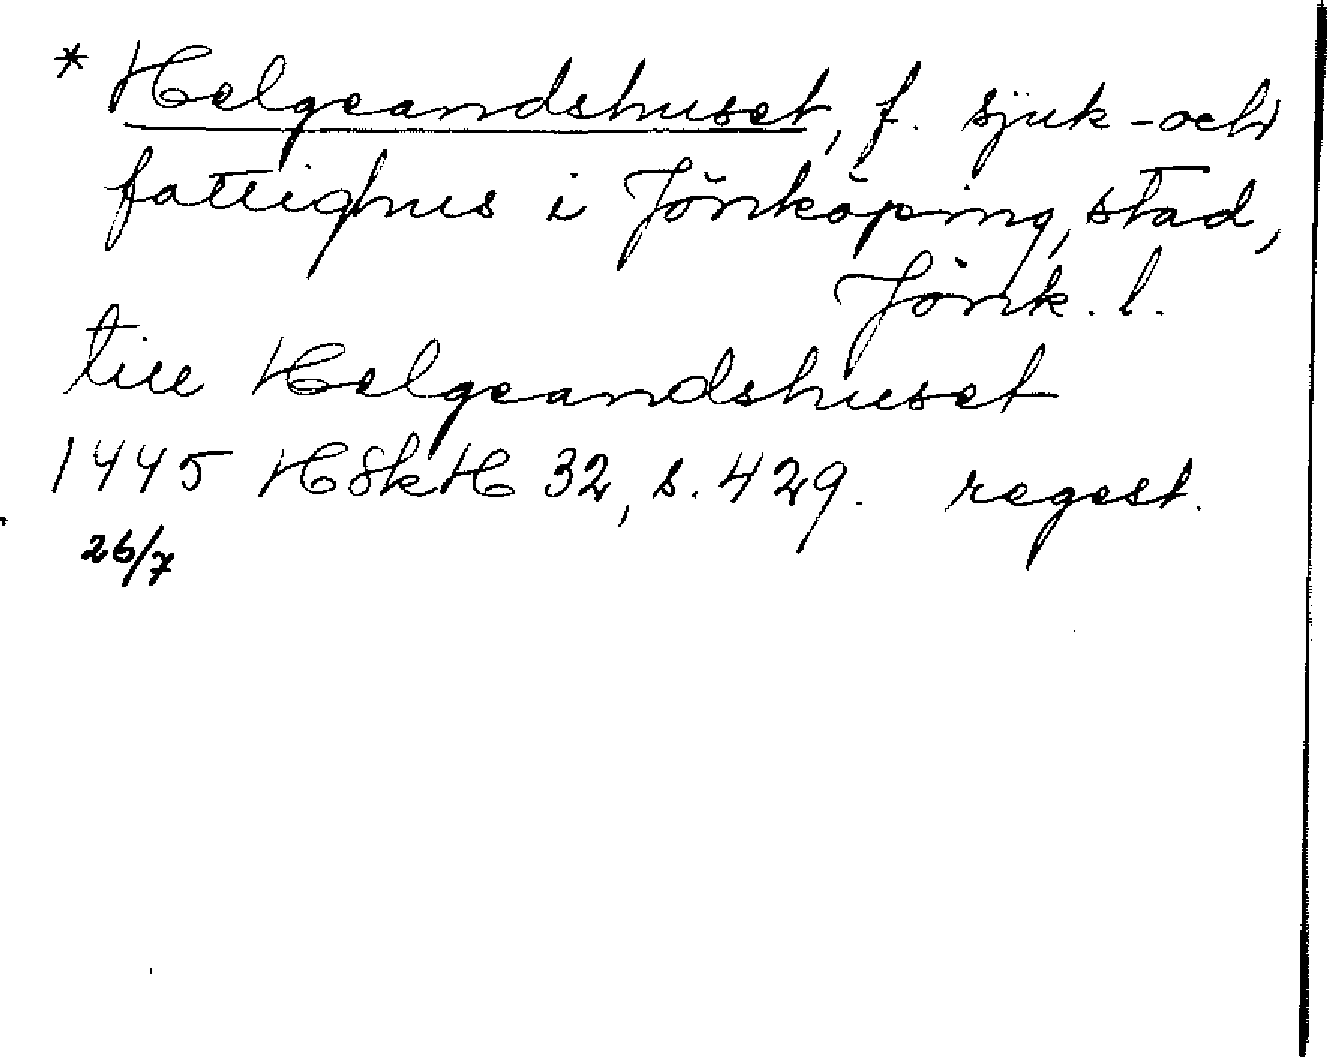 * Helgeandshuset, f. sjuk- och
fattighus i Jönköping, stad,
Jönk. l.
till Helgeandshuset
1445 HSkH 32, s. 429. regest.
26/7